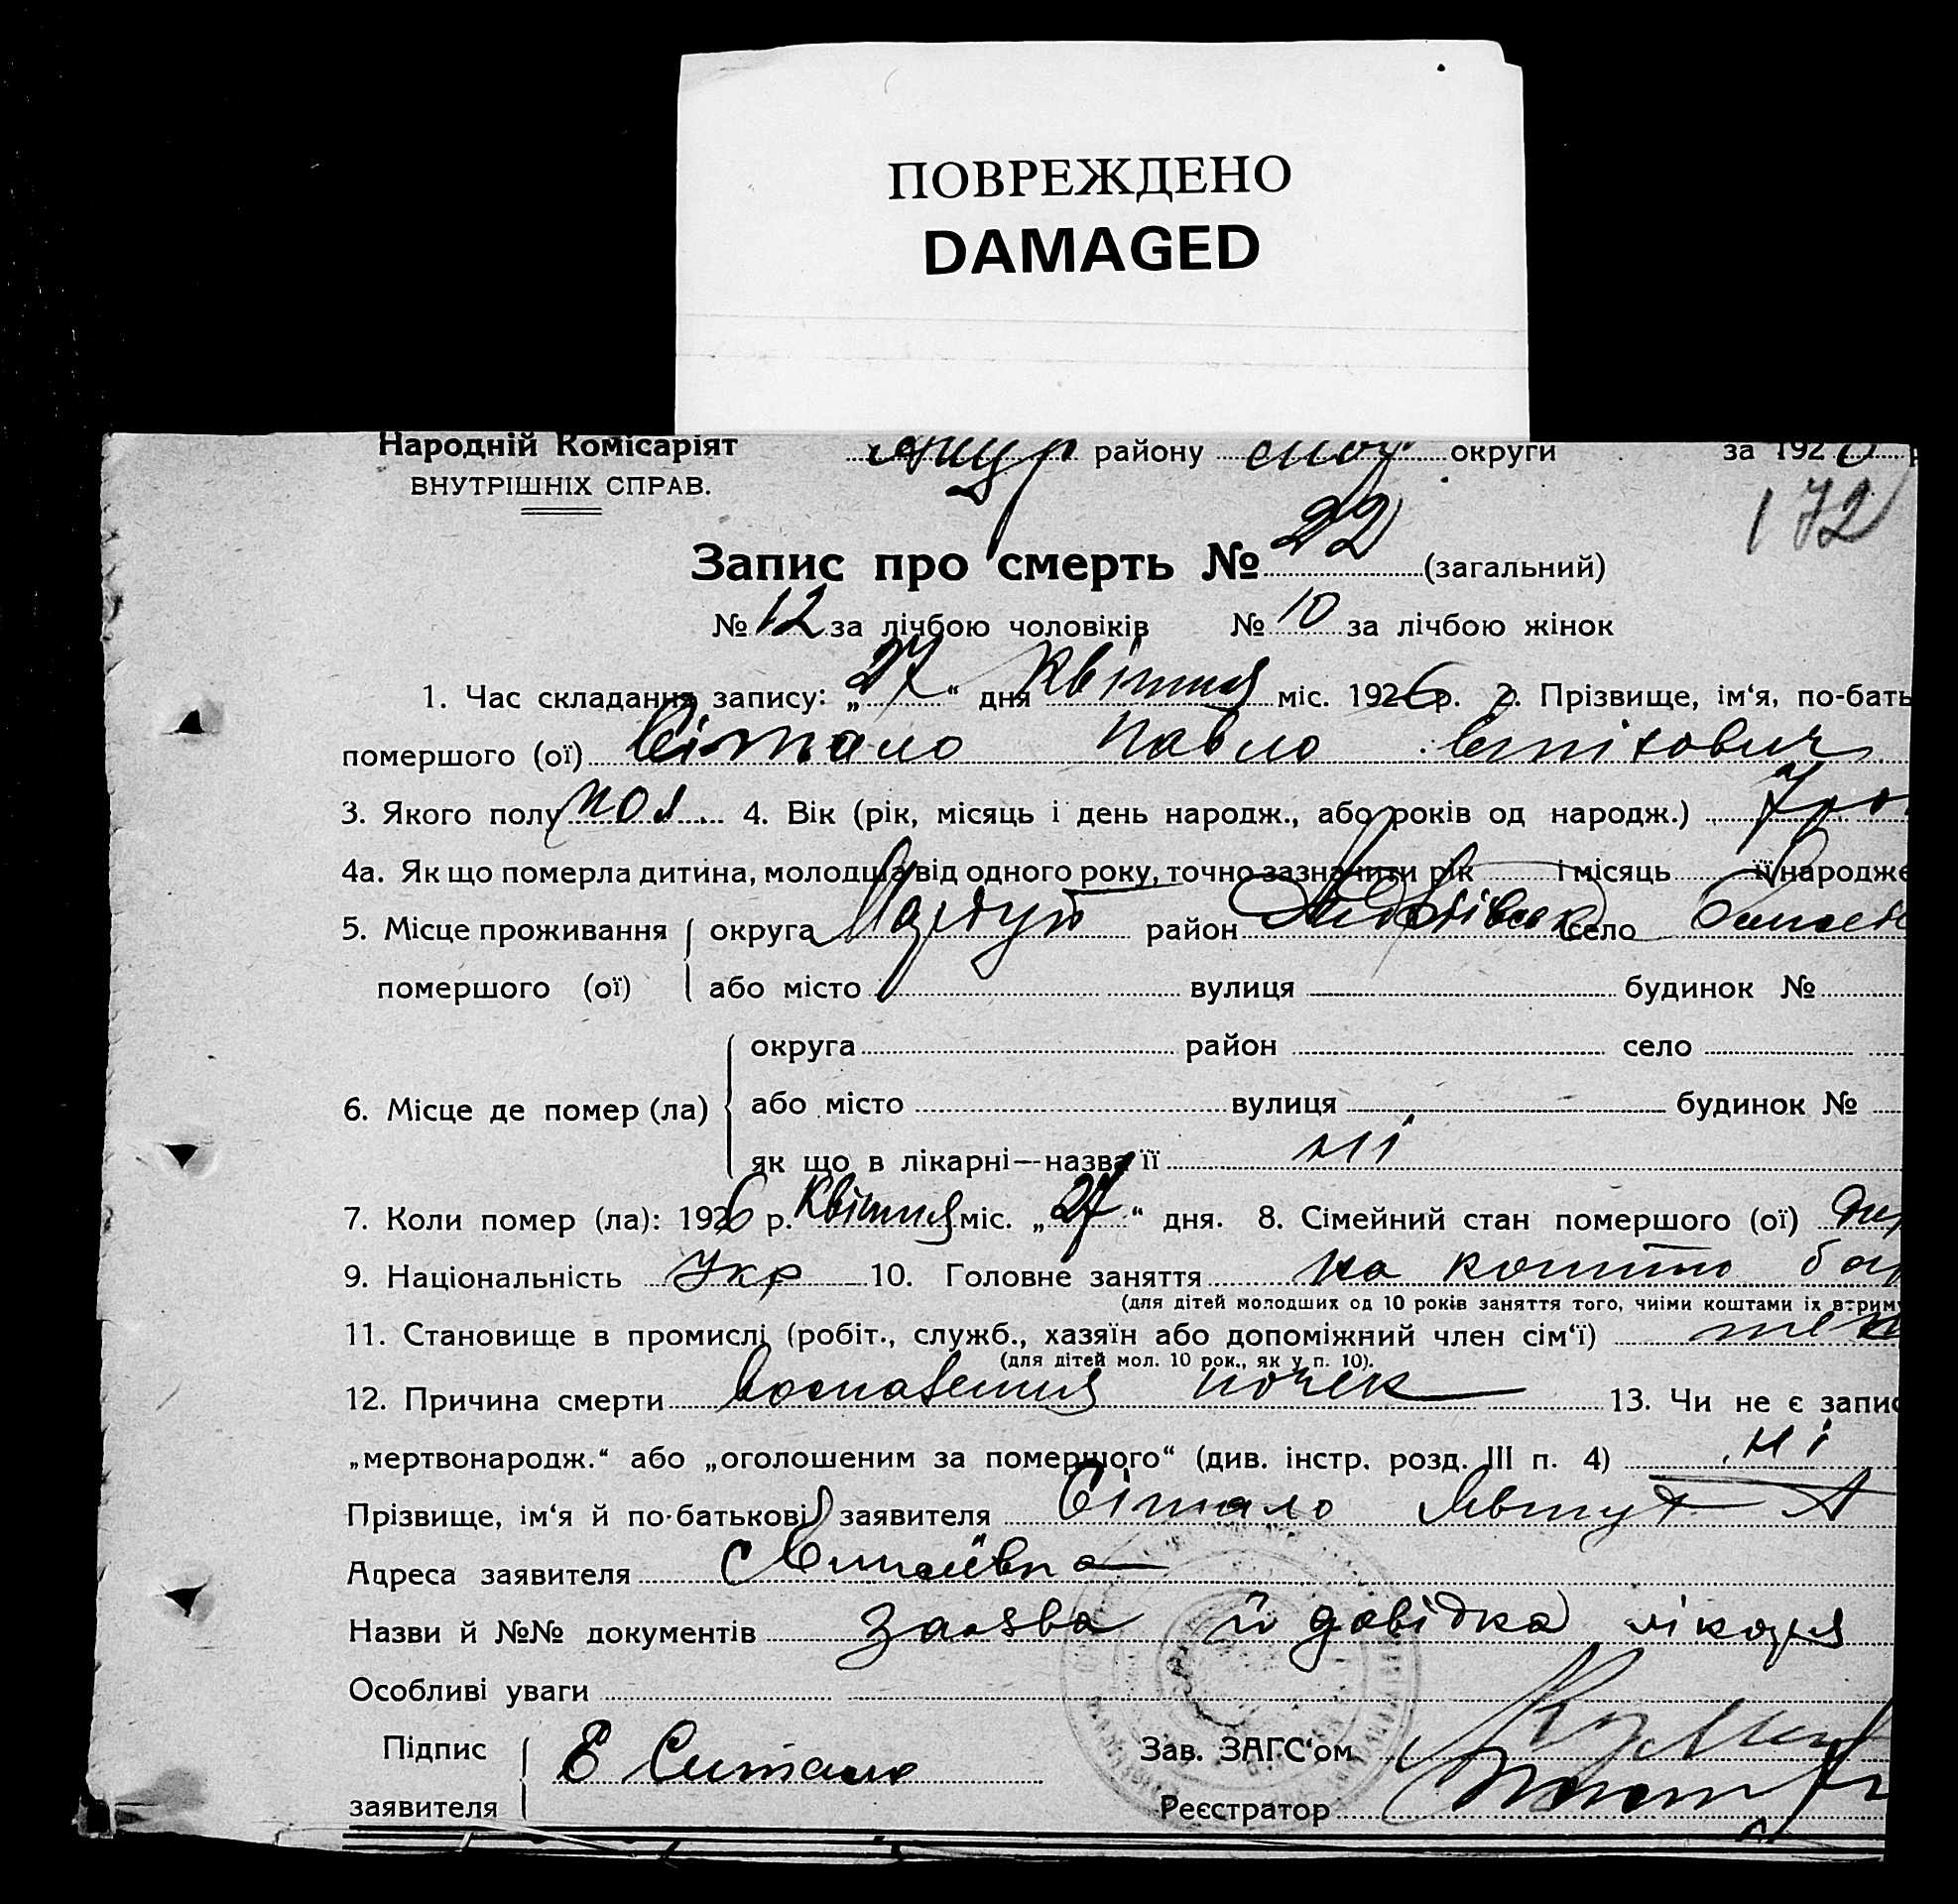 ПОВРЕЖДЕНО
DAMAGED
Народній Комісаріят району округи за 192
ВНУТРІШНІХ СПРАВ.
172
Запис про смерть № 22 (загальний)
№ 12 за лічбою чоловіків № 10 за лічбою жінок
1. Час складання запису: „27“ дня Квітня міс. 1926 р. 2. Прізвище, ім‘я, по-бать
помершого (ої) Сітало Павло
3. Якого полу чол. 4. Вік (рік, місяць і день народж., або років од народж.) 7 ро
4а. Як що померла дитина, молодша від одного року, точно зазначити рік і місяць її народже
5. Місце проживання округа район село
помершого (ої) або місто вулиця будинок №
округа район село
6. Місце де помер (ла) або місто вулиця будинок №
як що в лікарні—назва її ні
7. Коли помер (ла): 1926 р. Квітня міс. „27“ дня. 8. Сімейний стан помершого (ої)
9. Національність Укр 10. Головне заняття на кошти
(для дітей молодших од 10 років заняття того, чиїми коштами їх втрим
11. Становище в промислі (робіт., служб., хазяїн або допоміжний член сім‘ї)
(для дітей мол. 10 рок., як у п. 10).
12. Причина смерти воспаления почек 13. Чи не є запис
„мертвонародж.“ або „оголошеним за помершого“ (див. інстр. розд. III п. 4) ні
Прізвище, ім‘я й по-батькові заявителя Сітало Явтух А
Адреса заявителя
Назви й №№ документів Заява й довідка лікаря
Особливі уваги
Підпис Е Ситало Зав. ЗАГС‘ом
заявителя Реєстратор